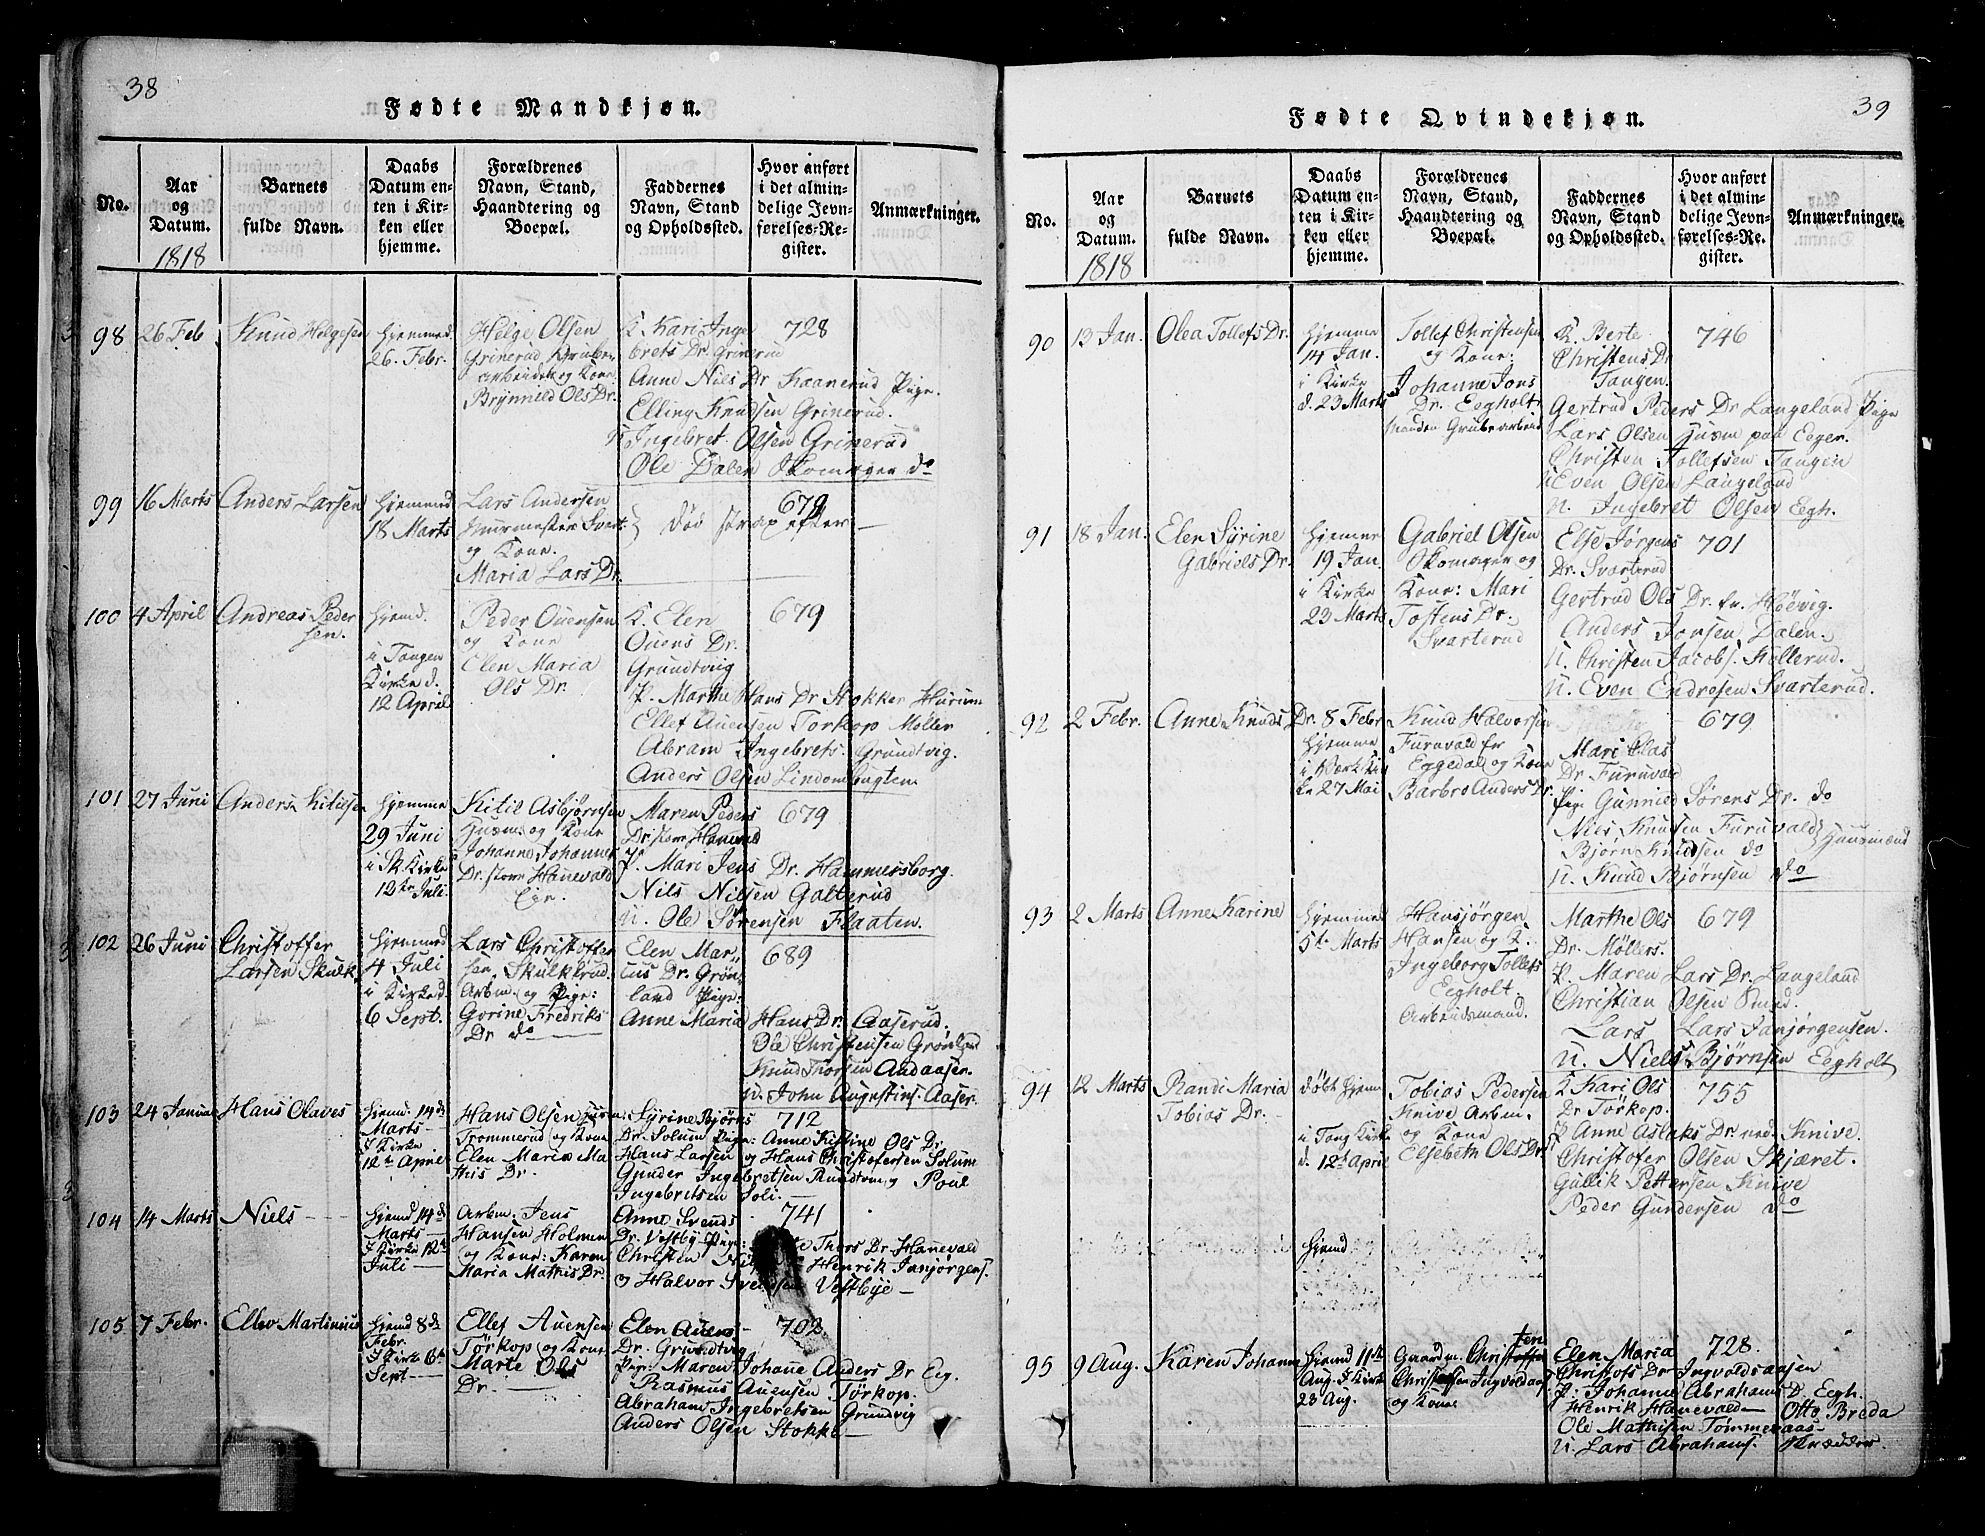 38
Fødte Mandkjøn.
No.
Aar og Datum.
1818
Barnets fulde Navn.
Daabs Datum enten i Kirken eller hjemme.
Forældrenes Navn, Stand, Haandtering og Boepæl.
Faddernes Navn, Stand og Opholdssted.
Hvor anført i det almindelige Jevnførelses-Register.
Anmærkninger.
98
26 Feb
Knud Helgesen
Hjemmed.
26. Febr.
Helge Olsen
Grinerud Grube
arbeider og Kone
Brynnild Ols Dr.
K. Kari Inge
brets Dr. Grinerud
Anne Niels Dr Kaanerud Pige.
Elling Knudsen Grinerud.
Ingebret Olsen Grinerud
Ole Dalen Skomager do
728
99
16 Marts
Anders Larsen
Hjemmed
18 Marts
Lars Andersen
Muurmester Svart.
og Kone.
Maria Lars Dr.
død strax efter —
679
100
4 April
Andreas Peder
sen.
Hjemd.
i Tangen
Kirke d.
12 April
Peder Ouensen
og Kone
Elen Maria
Ols Dr.
K. Elen
Ouens Dr.
Grundtvig
P. Marthe Hans Dr. Stokker Hurum
Ellef Auensen Torkop Møller
Abram Ingebrets. Grundtvig.
Anders Olsen Lindombugten
679
101
27 Juni
Anders Kitilsen
Hjemme
29 Juni
i Sk. Kirke
12te Juli.
Kitil Asbjørnsen
Husm. og Kone
Johanne Johannes
Dr. store Hanevald
Eje.
Maren Peders
Dr. store Hanevald
P. Mari Jens Dr. Hammersborg.
Nils Nilsen Galterud
U. Ole Sørensen Flaaten.
679
102
26 Juni
Christoffer
Larsen Skulk
Hjemmed
4 Juli
i Kirke d
6 Sept.
Lars Christoffer
sen, Skulkerud.
Arbm. og Pige:
Gorine Fredriks
Dr do
Elen Mar-
cus Dr. Grøn-
land Pige:
Anne Maria Hans Dr. Aaserud.
Ole Christensen Grønland
Knud Thorsen Andaaser.
U. John Augustins. Aaser.
689
103
24 Januar
Hans Olaves
Hjemd. 14de
Marts -
I Kirke
12te April
Hans Olsen Husm:
Trommerud og Kone
Elen Maria Ma
this Dr.
Syrine Bjørns
Dr. Solum Pige: Anne Kistine Ols Dr.
Hans Larsen og Hans Christofersen Solum
Gunder Ingebretsen Rundtom og Poul
Ingebritsen Joli. —
712
104
14 Marts
Niels
Hjemd 14de
Marts -
I Kirke 12te
Juli -
Arbm: Jens
Hansen Holmen
og Kone: Karen
Maria Mathis Dr
Anne Svends
Dr. Vestby Pige: Thors Dr. Hanevald
Christen Henrik Janjørgens.
og Halvor Svendsen Vestbye —
741
105
7 Febr.
Ellev Martinius
Hjemd 8de
Febr.
I Kirke 6te
Sept -
Ellef Auensen
Tørkop og Kone
Marte Ols
Dr. —
Elen Auens -
Dr. Grundtvig
Pige: Maren Johane Anders Dr Eig.
Rasmus Auensen Tørkop.
Abraham Ingebretsen Grundvig
Anders Olsen Stokke —
702.
39
Fødte Qvindekjøn.
No.
Aar og Datum.
1818
Barnets fulde Navn.
Daabs Datum enten i Kirken eller hjemme.
Forældrenes Navn, Stand, Haandtering og Boepæl.
Faddernes Navn, Stand og Opholdssted.
Hvor anført i det almindelige Jevnførelses-Register.
Anmærkninger.
90
13 Jan.
Olea Tollefs Dr.
Hjemme
14 Jan.
i Kirke
d. 23 Marts
Tollef Christensen
og Kone:
Johanne Jons
Dr. Eegholt
Manden Grubearbeid
K. Berte
Christens Dr
Tangen.
Gertrud Peders Dr Langeland Pige
Lars Olsen Husm paa Eeger.
Christen Tollefsen Tangen
U Even Olsen Langeland
U. Ingebret Olsen Eegh.
746
91
18 Jan.
Elen Syrine
Gabriels Dr.
Hjemme
19 Jan.
i Kirke
23 Marts
Gabriel Olsen
Skomager og
Kone: Mari
Tostens Dr.
Svarterud
Else Jørgens
Dr. Svarterud
Gertrud Ols Dr. fr. Høevig.
Anders Jonsen Dalen.
U. Christen Jacobs. Kollerud.
U. Even Endresen Svarterud.
701
92
2 Febr.
Anne Knuds Dr.
8 Febr
Hjemme
i Værk Kir
ke 27 Mai
Knud Halvorsen
Furuvald fr
Eggedal og Kone
Barbro Anders Dr.
Mari Clas
Dr Furuvald
Pige Gunnild Sørens Dr. do
Niels Knudsen Furuvald
Bjørn Knudsen do Huusmænd
U. Knud Bjørnsen do
679
93
2 Marts
Anne Karine
Hjemme
5te Marts
Hansjørgen
Hansen og K.
Ingeborg Tollefs
Eegholt.
Arbeidsmand.
Marthe Ols
Dr. Møllers.
P. Maren Lars Dr. Langeland
Christian Olsen Smed.
Lars Lars Janjørgensen.
U. Niels Bjørnsen Eegholt
679
94
12 Marts
Randi Maria
Tobias Dr. -
døbt hjem
i Tang Kirke
d. 12te April
Tobias Pedersen
Knive Arbm.
og Kone
Elsebeth Ols Dr
K Kari Ols
Dr Törkop.
P Anne Aslaks Dr. ned. Knive.
Christofer Olsen Skjæret.
Gullik Pettersen Knive
Peder Gundersen do
755
Hjemd
95
9 Aug.
Karen Johanne
Hjemd 11te
Aug. I Kirke
23 Aug.
Gaardm. Christen
Christofersen Ingvoldaas
og Kone
Elen Maria
Christofs Dr Ingvoldsaasen
P. Johanne Abrahams D. Eegh.
Henrik Hanevald — Otto Breda
Ole Mathisen Tømmeraas —
U. Lars Abrahams. Skrædder.
728